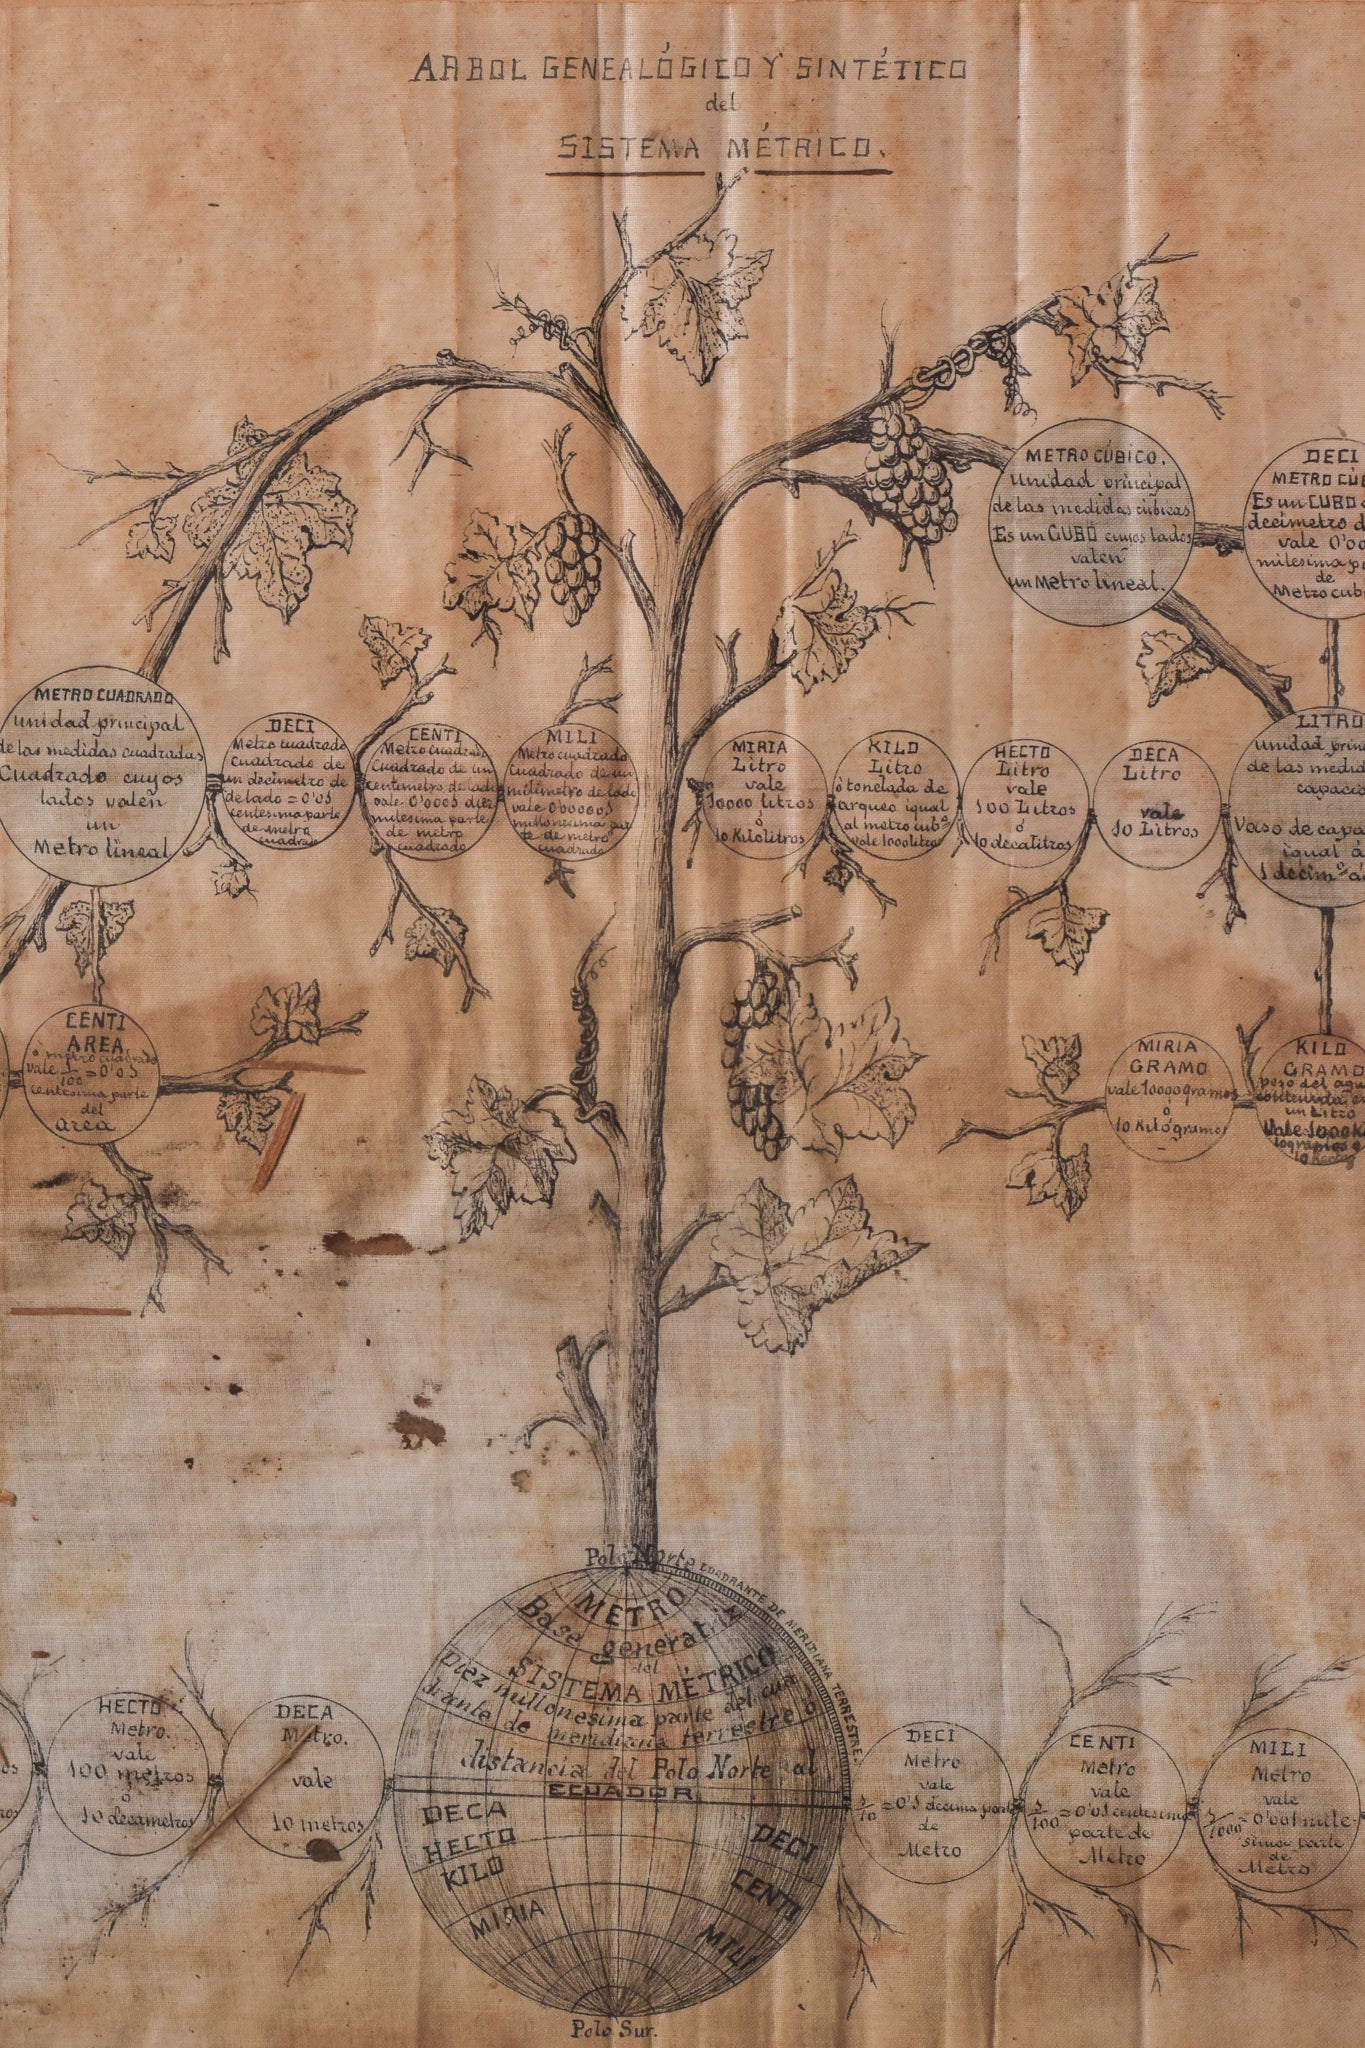 ARBOL GENEALÓGICO Y SINTÉTICO
del
SISTEMA MÉTRICO.
METRO CÚBICO.
unidad principal
de las medidas cúbicas
Es un CUBO cuyos lados
valen
un Metro lineal.
DECI
METRO CÚ
Es un CUBO
decimetro d
vale 0'00
milesima p
de
Metro cub
METRO CUADRADO
unidad principal
de las medidas cuadradas
Cuadrado cuyos
lados valen
un
Metro lineal
DECI
Metro cuadrado
cuadrado de
un decimetro de
de lado = 0'01
centesima parte
de metro
cuadrado
CENTI
Metro cuadrado
Cuadrado de un
centimetro de lado
vale 0'0001 diez
milesima parte
de metro
cuadrado
MILI
Metro cuadrado
cuadrado de un
milimetro de lado
vale 0'000001
millonesima par
te de metro
cuadrado
MIRIA
Litro
vale
10000 litros
ó
10 Kilolitros
KILO
Litro
ó tonelada de
arqueo igual
al metro cubº
vale 1000 litros
HECTO
Litro
vale
100 Litros
ó
10 decalitros
DECA
Litro
vale
10 Litros
LITRO
unidad prin
de las medid
capacid
Vaso de capa
igual á
1 decimº á
CENTI
AREA
ó metro cuadrado
vale 1/100 = 0'01
centesima parte
del
area
MIRIA
GRAMO
vale 10000 gramos
ó
10 Kilógramos
KILO
GRAMO
peso del agu
contenida en
un Litro
Vale 1000
Polo Norte
CUADRANTE DE MERIDIANA TERRESTRE
METRO
Base generatriz
del
SISTEMA MÉTRICO
Diez millonesima parte del cua
drante de meridiana terrestre ó
distancia del Polo Norte al
ECUADOR
DECA
HECTO
KILO
MIRIA
DECI
CENTI
MILI
Polo Sur.
HECTO
Metro.
vale
100 metros
ó
10 decametros
DECA
Metro.
vale
10 metros
DECI
Metro
vale
1/10 = 0'1 decima parte
de
Metro
CENTI
Metro
vale
1/100 = 0'01 centesima
parte de
Metro
MILI
Metro
vale
1/1000 = 0'001 mile-
sima parte
de
Metro